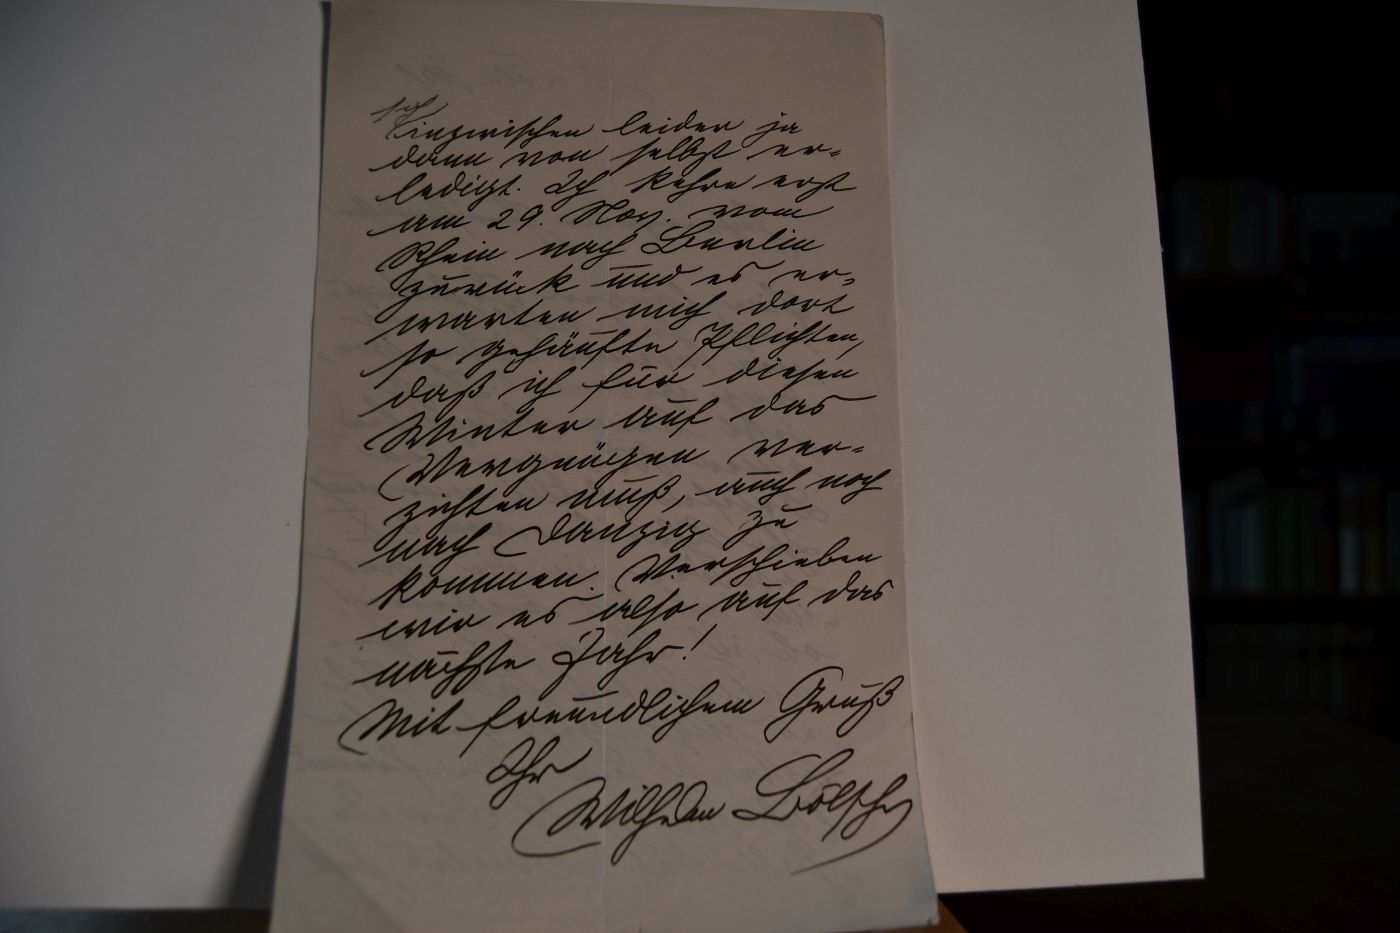 sich
inzwischen leider ja
dann von selbst er-
ledigt. Ich kehre erst
am 29. Nov. vom
Rhein nach Berlin
zurück und es er-
warten mich dort
so gehäufte Pflichten,
daß ich für diesen
Winter auf das
Vergnügen ver-
zichten muß, auch noch
nach Danzig zu
kommen. Verschieben
wir es also auf das
nächste Jahr!
Mit freundlichem Gruß
Ihr
Wilhelm Bölsche